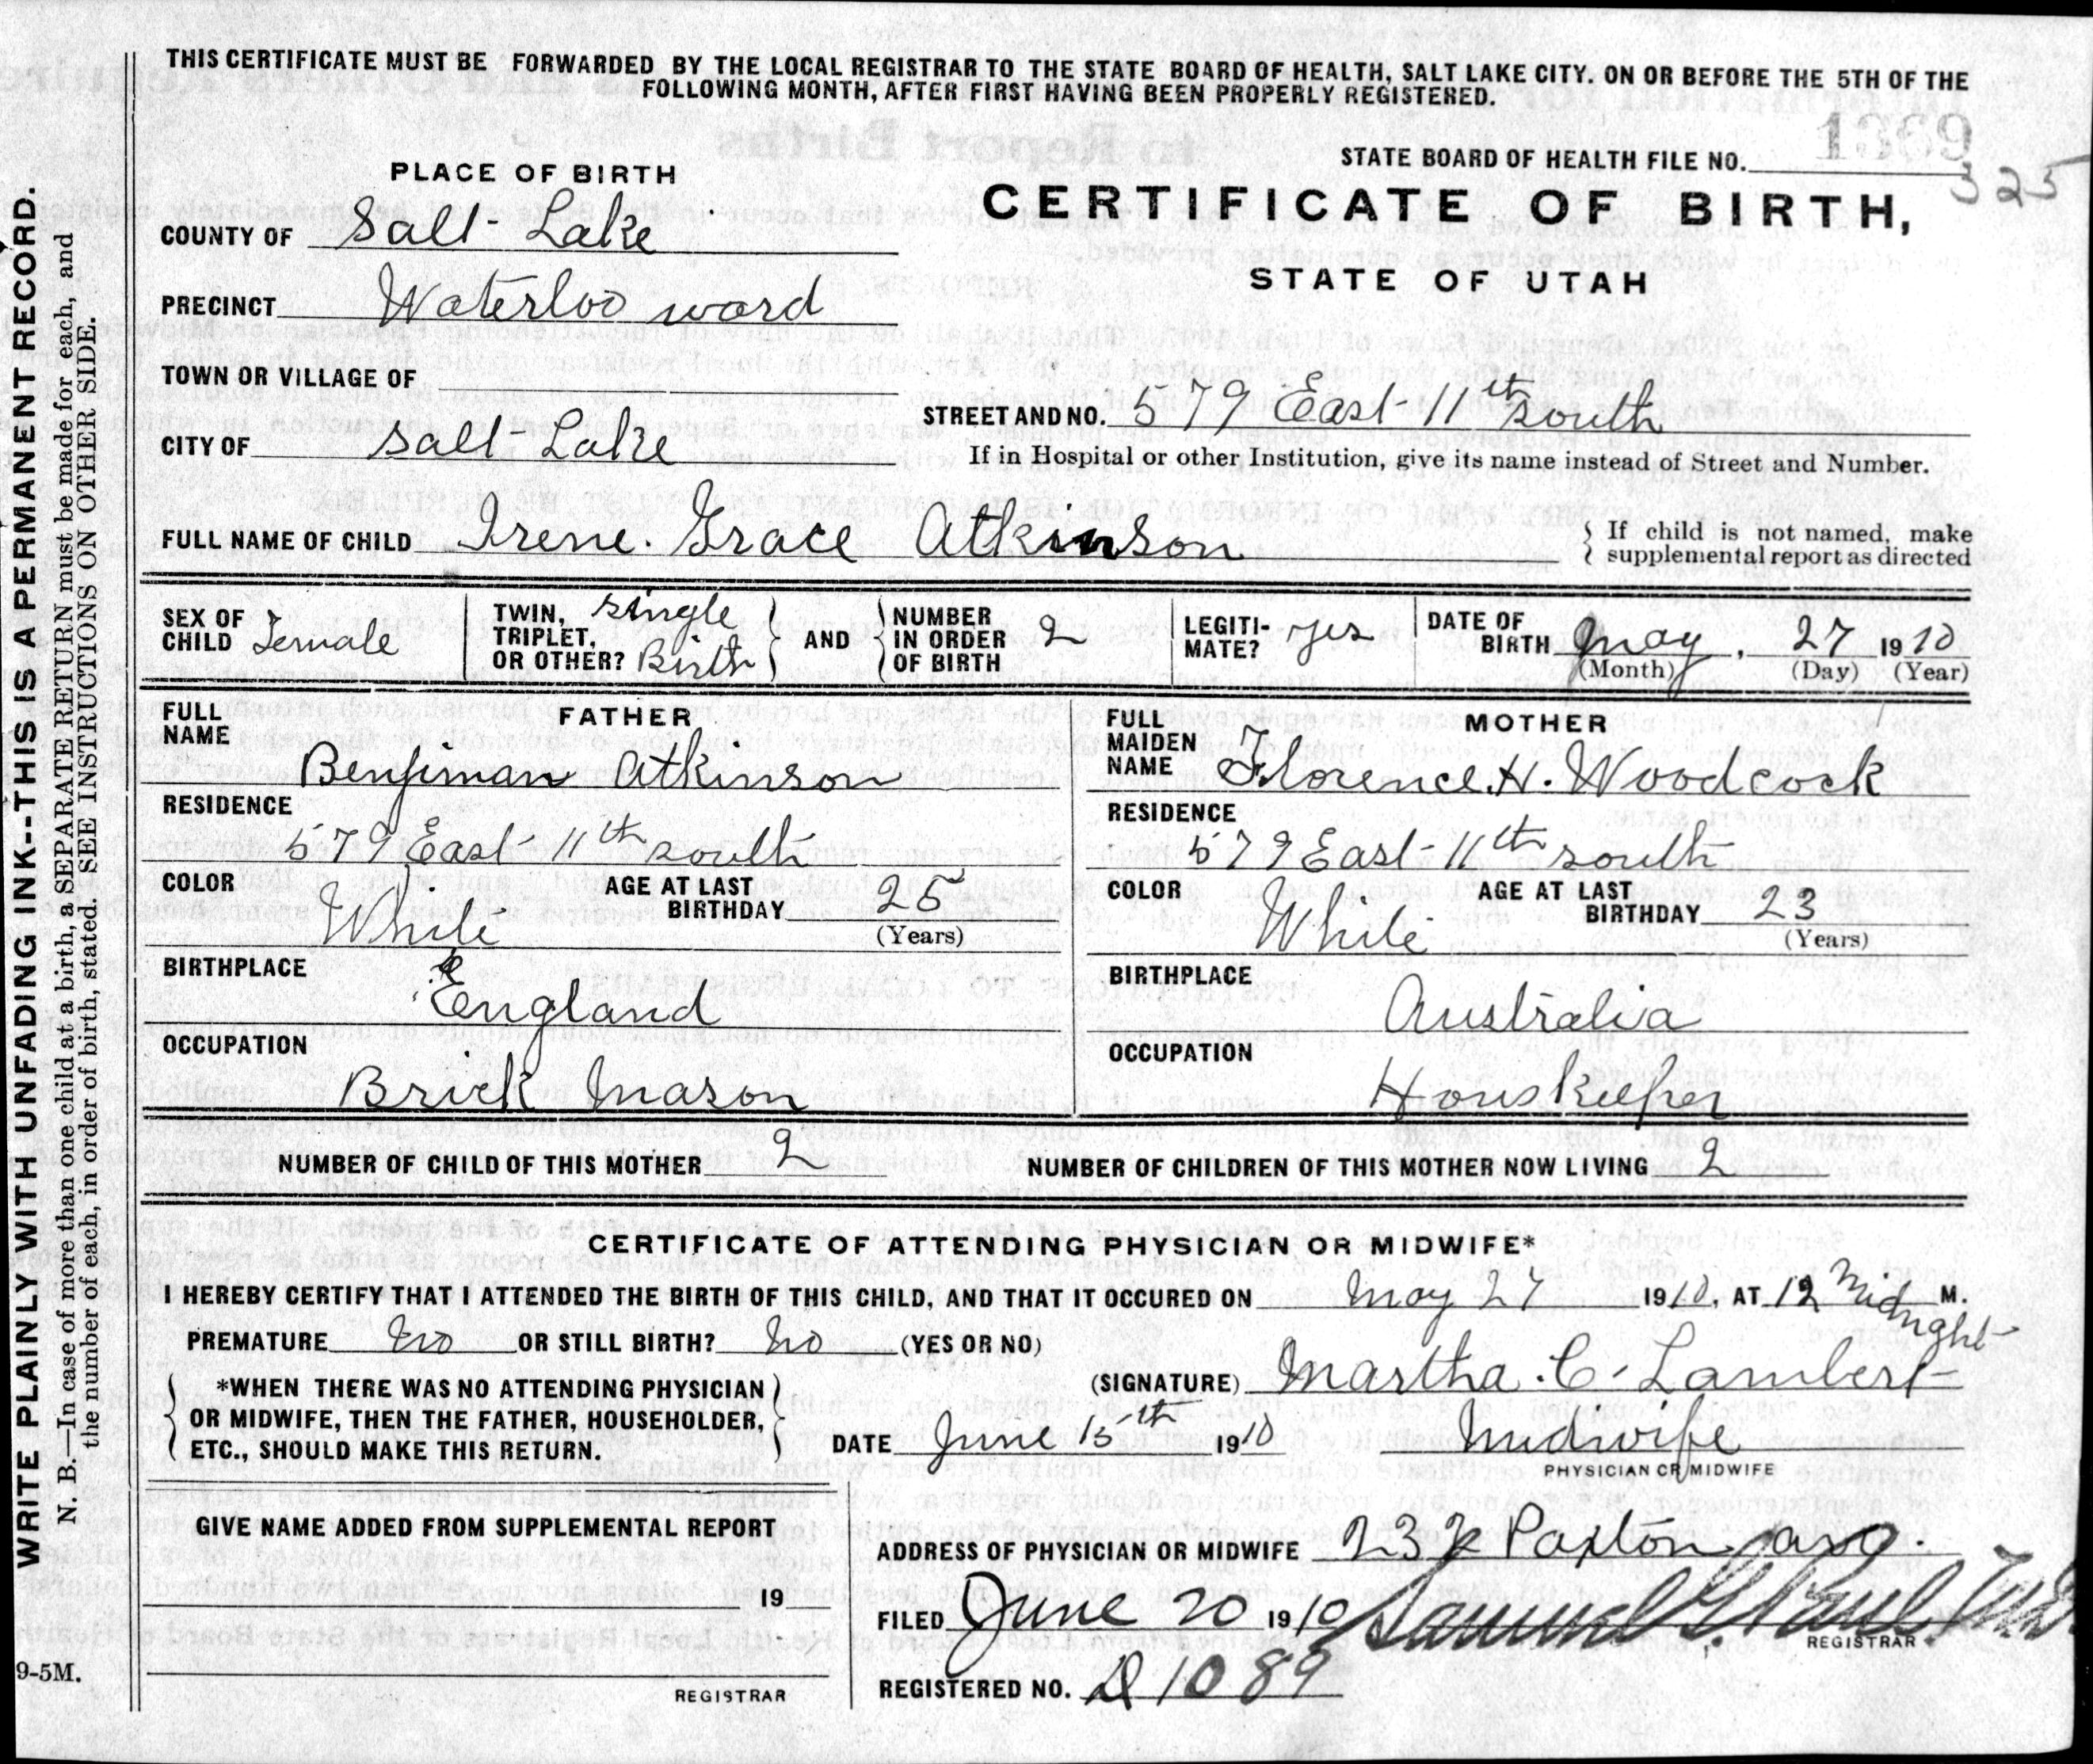 THIS CERTIFICATE MUST BE FORWARDED BY THE LOCAL REGISTRAR TO THE STATE BOARD OF HEALTH, SALT LAKE CITY. ON OR BEFORE THE 5TH OF THE
FOLLOWING MONTH, AFTER FIRST HAVING BEEN PROPERLY REGISTERED.
STATE BOARD OF HEALTH FILE NO. 1369
325
PLACE OF BIRTH
CERTIFICATE OF BIRTH,
STATE OF UTAH
COUNTY OF Salt Lake
PRECINCT Waterloo ward
TOWN OR VILLAGE OF
STREET AND NO. 579 East 11th south
CITY OF Salt Lake
If in Hospital or other Institution, give its name instead of Street and Number.
FULL NAME OF CHILD Irene. Grace Atkinson
If child is not named, make
supplemental report as directed
SEX OF CHILD Female
TWIN, TRIPLET, OR OTHER? single Birth
AND NUMBER IN ORDER OF BIRTH 2
LEGITI-MATE? yes
DATE OF BIRTH May, 27 1910
(Month) (Day) (Year)
FATHER
FULL NAME Benjiman Atkinson
RESIDENCE
579 East 11th south
COLOR White
AGE AT LAST BIRTHDAY 25
(Years)
BIRTHPLACE
England
OCCUPATION
Brick Mason
MOTHER
FULL MAIDEN NAME Florence. H. Woodcock
RESIDENCE
579 East 11th south
COLOR White
AGE AT LAST BIRTHDAY 23
(Years)
BIRTHPLACE
Australia
OCCUPATION
Houskeeper
NUMBER OF CHILD OF THIS MOTHER 2
NUMBER OF CHILDREN OF THIS MOTHER NOW LIVING 2
CERTIFICATE OF ATTENDING PHYSICIAN OR MIDWIFE*
I HEREBY CERTIFY THAT I ATTENDED THE BIRTH OF THIS CHILD, AND THAT IT OCCURED ON May 27 1910, AT 12 Midnight M.
PREMATURE No OR STILL BIRTH? No (YES OR NO)
*WHEN THERE WAS NO ATTENDING PHYSICIAN
OR MIDWIFE, THEN THE FATHER, HOUSEHOLDER,
ETC., SHOULD MAKE THIS RETURN.
(SIGNATURE) Martha. C. Lambert
DATE June 15th 1910 Midwife
PHYSICIAN OR MIDWIFE
GIVE NAME ADDED FROM SUPPLEMENTAL REPORT
19
REGISTRAR
ADDRESS OF PHYSICIAN OR MIDWIFE Paxton ave.
FILED June 20 1910 Samuel G. Paul
REGISTRAR
REGISTERED NO. 1089
WRITE PLAINLY WITH UNFADING INK--THIS IS A PERMANENT RECORD.
N. B.—In case of more than one child at a birth, a SEPARATE RETURN must be made for each, and
the number of each, in order of birth, stated. SEE INSTRUCTIONS ON OTHER SIDE.
9-5M.